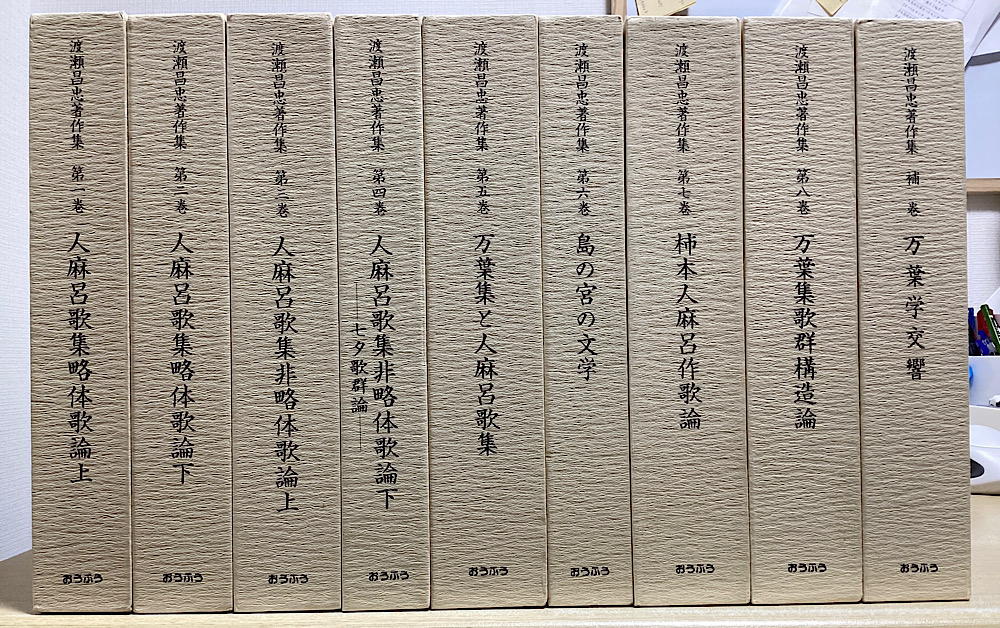 渡瀬昌忠著作集 第一巻 人麻呂歌集略体歌論上
おうふう
渡瀬昌忠著作集 第二巻 人麻呂歌集略体歌論下
おうふう
渡瀬昌忠著作集 第三巻 人麻呂歌集非略体歌論上
おうふう
渡瀬昌忠著作集 第四巻 人麻呂歌集非略体歌論下
――七夕歌群論――
おうふう
渡瀬昌忠著作集 第五巻 万葉集と人麻呂歌集
おうふう
渡瀬昌忠著作集 第六巻 島の宮の文学
おうふう
渡瀬昌忠著作集 第七巻 柿本人麻呂作歌論
おうふう
渡瀬昌忠著作集 第八巻 万葉集歌群構造論
おうふう
渡瀬昌忠著作集 補巻 万葉学交響
おうふう